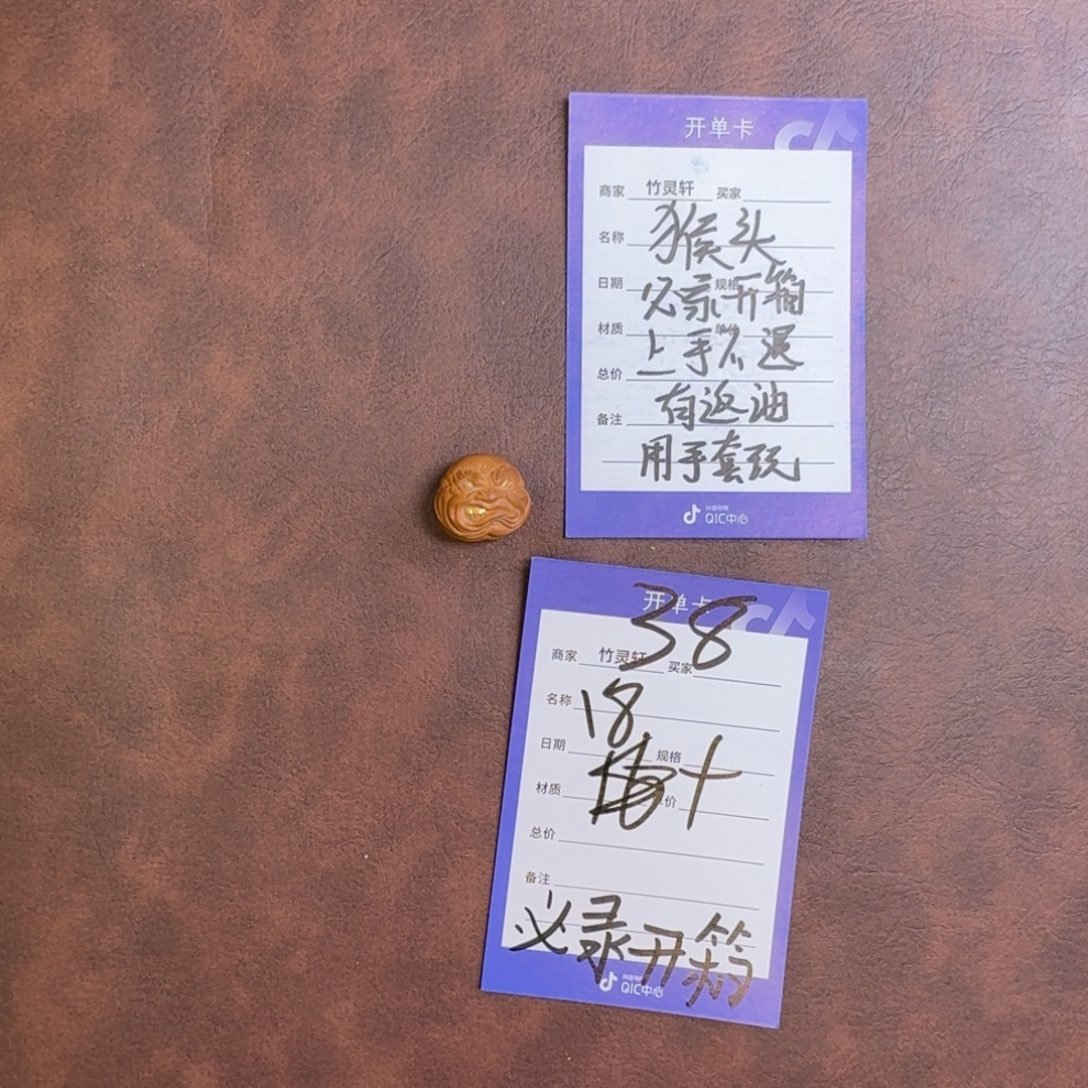 开单卡
商家 竹灵轩 买家
名称 猴头
日期 规格
必录开箱
材质 单价
上手不退
总价
有返油
备注
用手套玩
抖音电商
QIC中心
38
开单卡
商家 竹灵轩 买家
名称 18
日期 规格
材质 单价
十
总价
备注
必录开箱
抖音电商
QIC中心